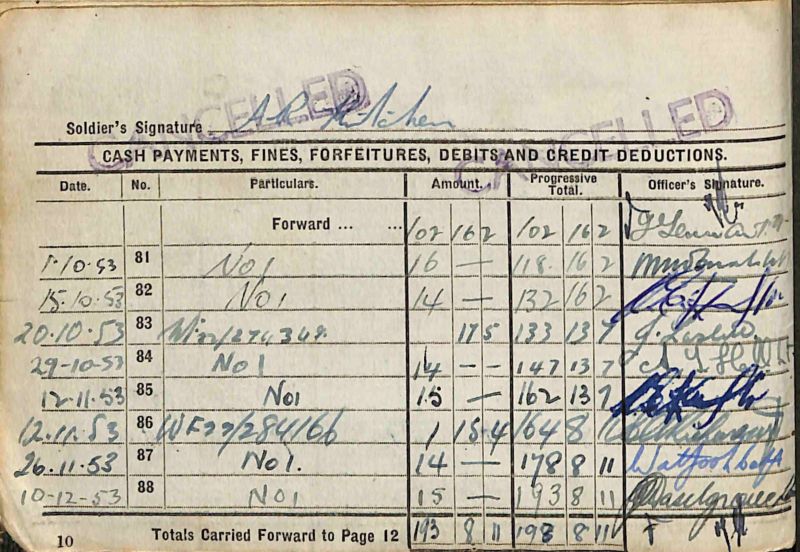 CANCELLED CANCELLED
Soldier's Signature A R Kitchen
CASH PAYMENTS, FINES, FORFEITURES, DEBITS AND CREDIT DEDUCTIONS.
Date. No. Particulars. Amount. Progressive Total. Officer's Signature.
Forward ... ... 102 16 2 102 16 2
1-10-53 81 No1 16 — 118 16 2
15.10.53 82 No1 14 — 132 16 2
20.10.53 83 17 5 133 13 7
29-10-53 84 No1 14 — 147 13 7
12.11.53 85 No1 15 — 162 13 7
12.11.53 86 WF22/284166 1 15-4 164 8 11
26.11.53 87 No1. 14 — 178 8 11
10-12-53 88 No1 15 — 193 8 11
10 Totals Carried Forward to Page 12 193 8 11 193 8 11